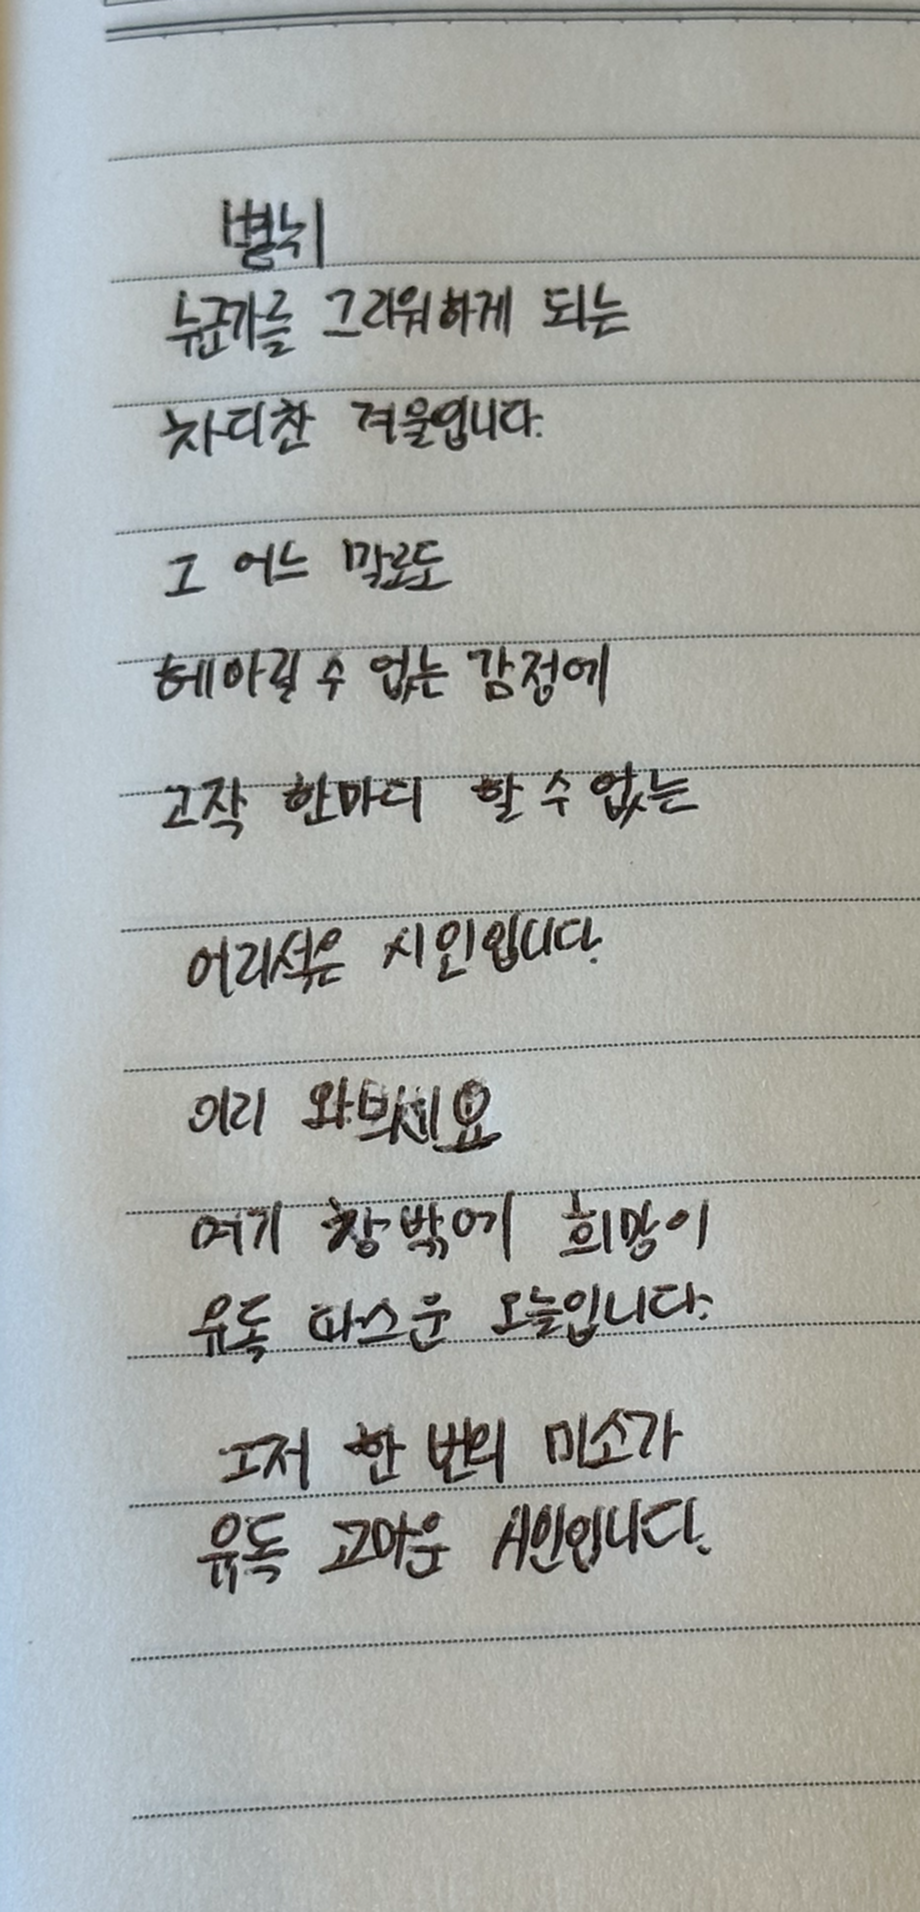 별뉘
누군가를 그리워하게 되는
차디찬 겨울입니다.
그 어느 말로도
헤아릴 수 없는 감정에
고작 한마디 할 수 없는
어리석은 시인입니다.
이리 와보세요
여기 창밖에 희망이
유독 따스운 오늘입니다.
그저 한 번의 미소가
유독 고마운 시인입니다.